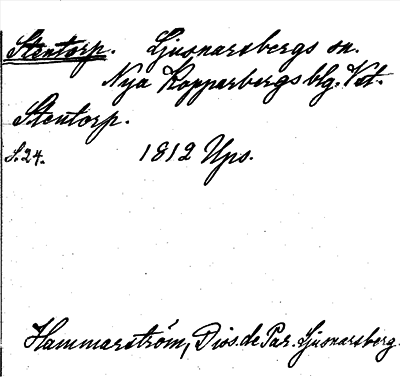 Stentorp. Ljusnarsbergs sn.
Nya Kopparbergs blg. Vst.
Stentorp.
S.24. 1812 Ups.
Hammarström, Diss. de Par. Ljusnarsberg.